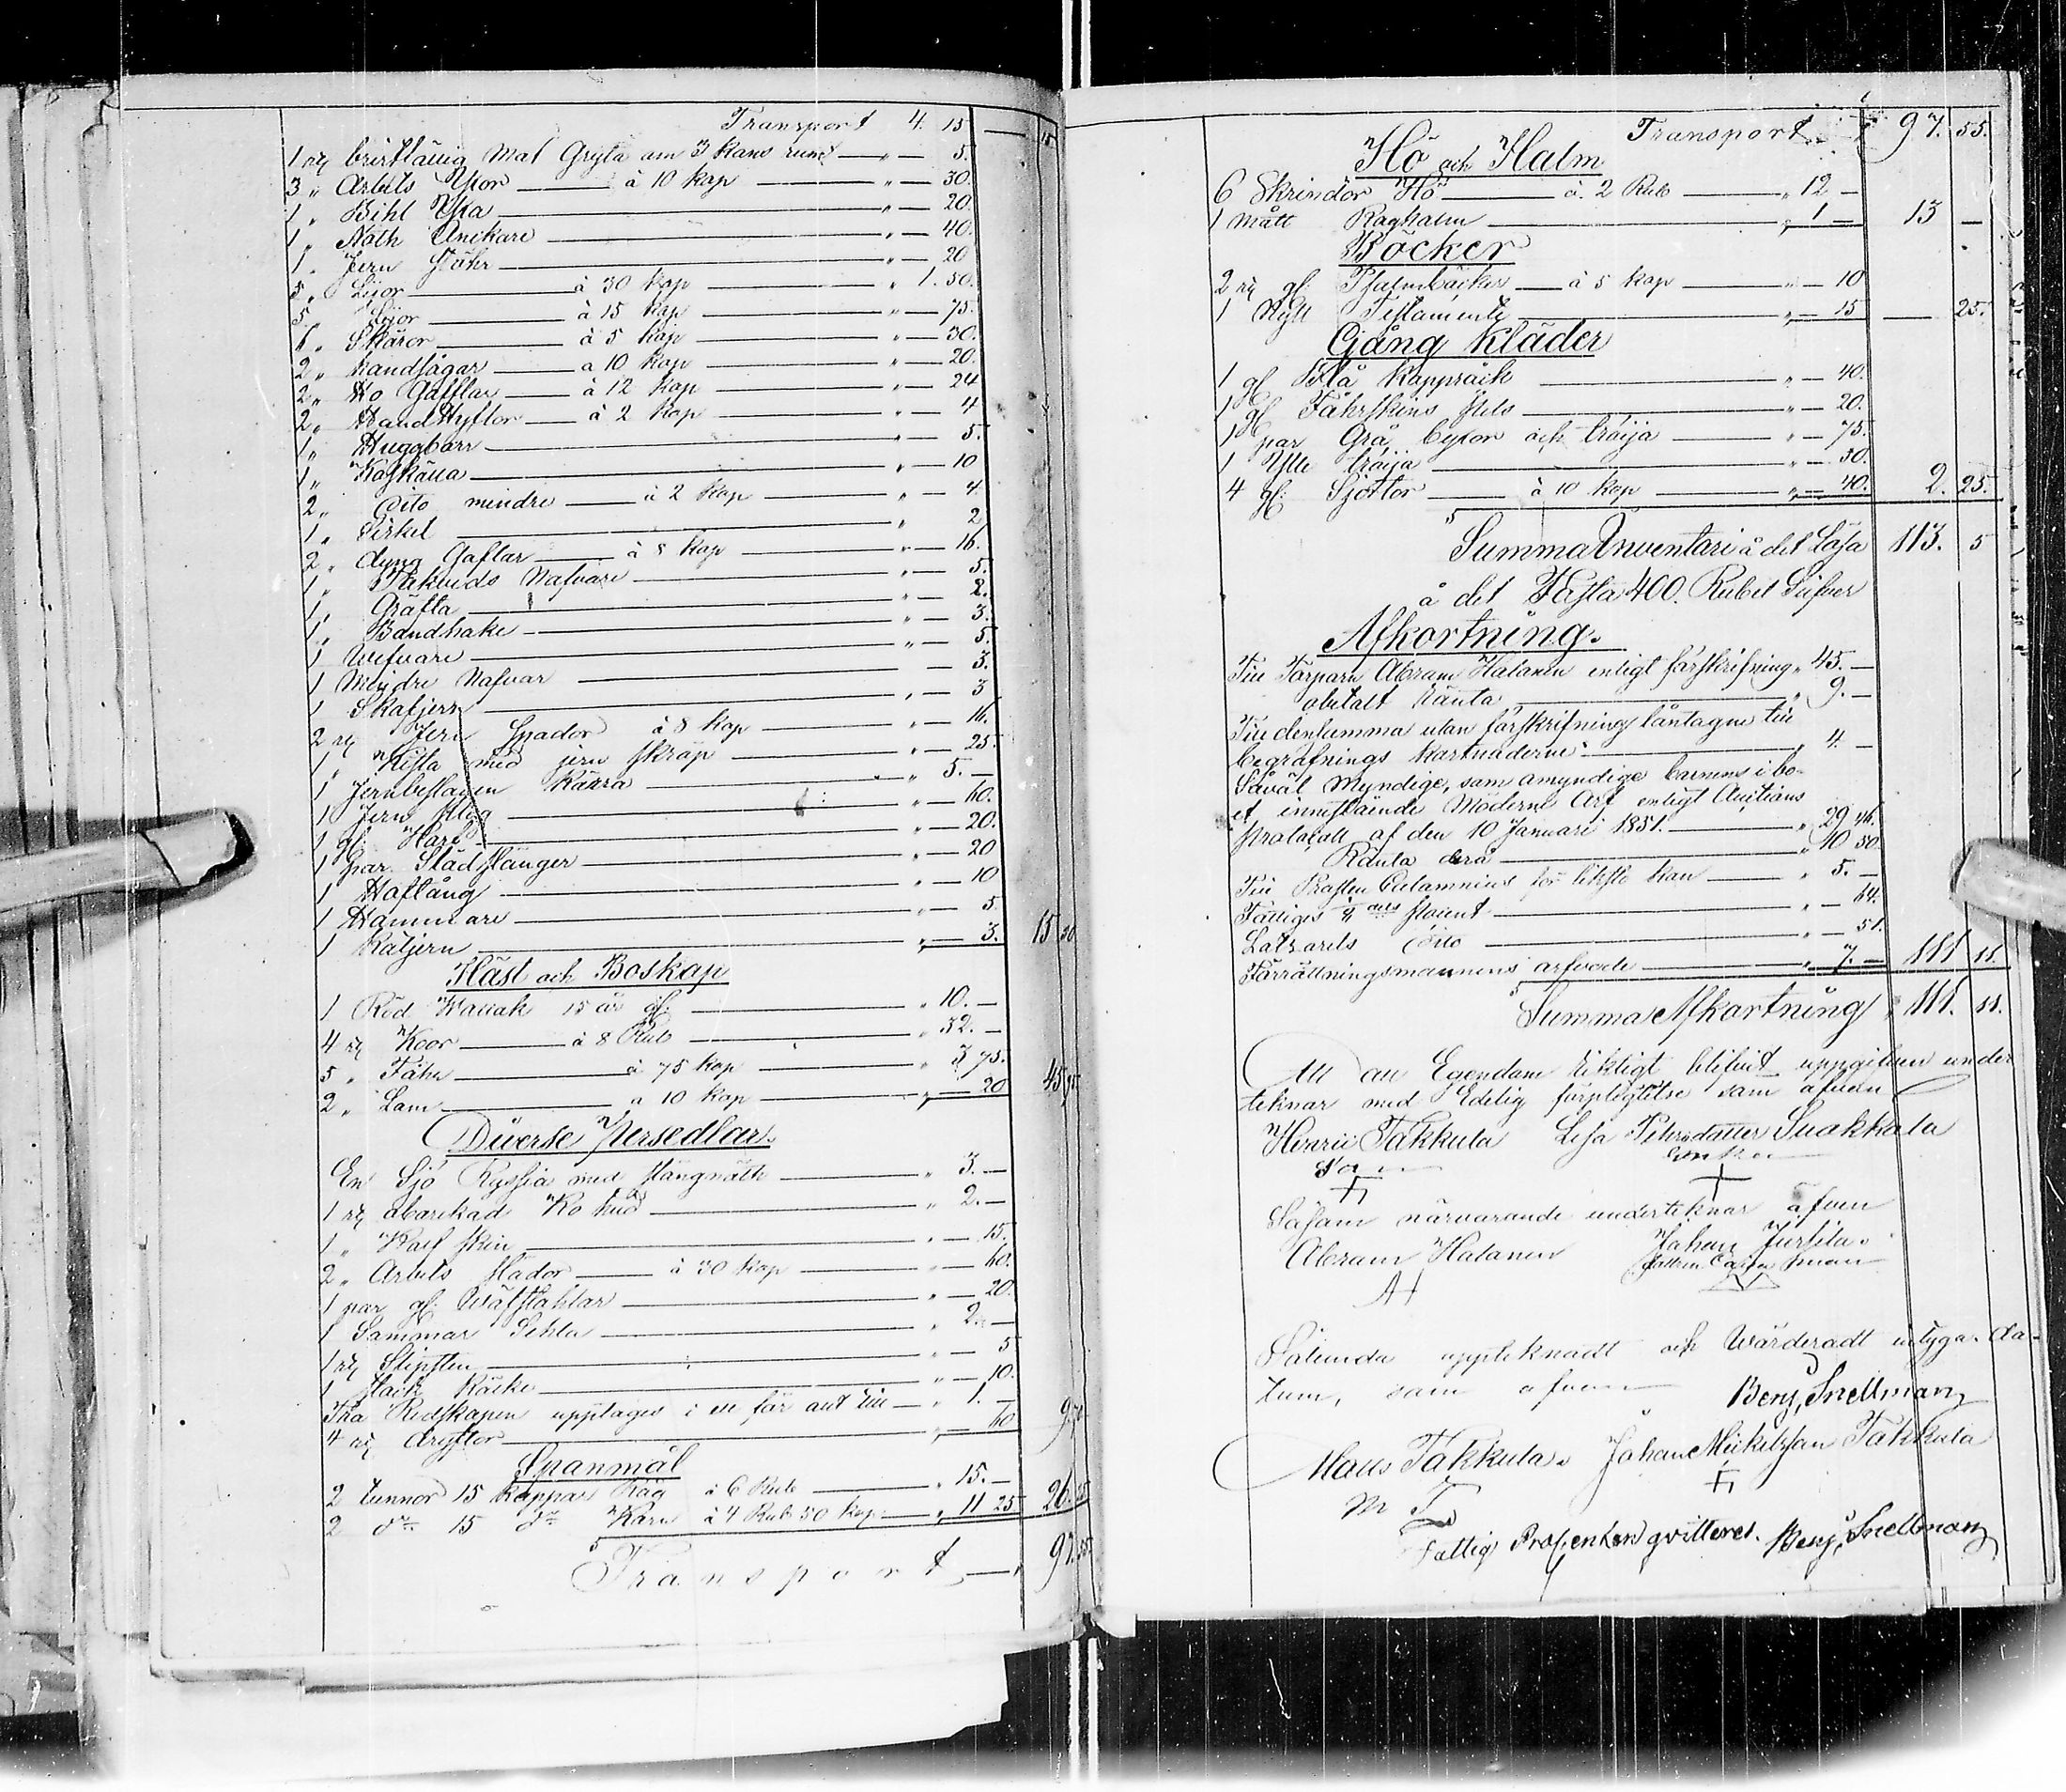 Transport 4. 15 — 15
1 st bristfällig Mat Gryta om 3 Kans rund — " — 5.
3 " Arbets Yxor — à 10 kop — " — 30.
1 " Bihl Yxa — " — 20.
1 " Nöth Anikare — " — 40.
1 " Jern Stöhr — " — 20
5 " Lijor — à 30 kop — " 1. 50.
5 " Lijor — à 15 kop — " — 75.
6 " Skäror — à 5 kop — " — 30.
2 " handsågar — a 10 kop — " — 20.
2 " Hö Gafflar — à 12 kop — " — 24
2 " Hand Hyflor — à 2 kop — " — 4
1 " Huggbarr — " — 5.
1 " Koskälla — " — 10
2 " Dito mindre — à 2 kop — " — 4
1 " Sirkel — " 2
2 " dyng Gaflar — à 8 kop — " — 16.
1 " Nafvare — " — 5.
1 " Gräfta — " — 2.
1 " Bandhake — " — 3.
1 Wefvare — " — 5.
1 Mindre Nafvar — — 3.
1 Skafjern — " — 3
2 st Jern Spador à 8 kop — " — 16.
1 " Kista med jern skrap — " — 25.
1 Jernbeslagen Kärra — " 5. —
1 Jern Plog — " — 60.
1 gl: Harf — " — 20.
1 par Städ stänger — " — 20
1 Hoftång — " — 10
1 Hammare — " — 5
1 Råljern — " — 3. 15 30
Häst och Boskap
1 Röd Wallak 15 år gl: — " 10. —
4 st Koor — à 8 Rub — " 32. —
5 " Fåhr — à 75 kop — " 3 75.
2 " Lam — a 10 kop — " — 20 45 95
Diverse Persedlar.
En Sjö Ryssia med stängnäth — " 3. —
1 st obarckad Ko hud — " 2. —
1 " Kalf skin — " — 15.
2 " Arbets slador — à 30 kop — " — 60.
1 par gl: Wäfstahlar — " — 20.
1 Sommar Sehla — " 2. —
1 st Slipsten — " — 5
1 Räcke — " — 10.
Trä Redskapen upptages i ett för allt till — " 1. —
4 st — " — 60 9 70
Spanmål
2 Tunnor 15 Kappar Råg à 6 Rub — " 15. —
2 d:o 15 d:o Korn à 4 Rub 50 kop — " 11 25. 26. 25
Transport — " 97. 55
Transport " 97. 55.
Hö och Halm
6 Skrindor Hö — à 2 Rub — " 12 —
1 Mått Råghalm — " 1 — 13 —
Böcker
2 st gl: Psalmböcker — à 5 kop — " — 10
1 Nytt Testamente — " — 15 — 25.
Gång kläder
1 gl Blå Kappråck — " — 40.
1 gl Fåhrskins Pels — " — 20.
1 par Grå byxor och tröija — " — 75.
1 Ylle tröija — " — 50.
4 gl: Sjortor — à 10 kop — " — 40. 2. 25.
Summa Inventari å det Lösa 113. 5
å det Fasta 400. Rubel Silfver
Afkortning.
Till Torparn Abram Halanen enligt förskrifning " 45. —
obetalt ränta — " 9. —
Till densamma utan förskrifning låntagne till
begrafnings kostnaderne — " 4. —
Såväl Myndige, som omyndige barnens i bo-
et innestående Möderne Arf enligt Auctions
protocoll af den 10 Januari 1851. — " 29 46.
Ränta derå — " 10 50.
Till Prosten Calamnius för likstol kon — " 5. —
Fattiges 1/4 dels procent — " — 64.
Latzarets Dito — " — 51.
Förrättningsmannens arfvode — " 7. — 111 11.
Summa Afkortning " 111. 11.
Att all Egendom riktigt blifvit uppgifven under
teknar med Edelig förpligtelse som ofvan
Henric Takkula Lisa Pehrsdotter Suokkola
Son Enka
Såsom närvarande underteknar ofvan
Abram Halanen Johan
AH
Sålunda uppteknadt och Wärderadt intyga. da-
tum, som ofvan — Benj, Snellman,
Mats Takkula. Johan Mickelsson Takkula
M T
Fattig Procenten qvitteres. Benj, Snellman,